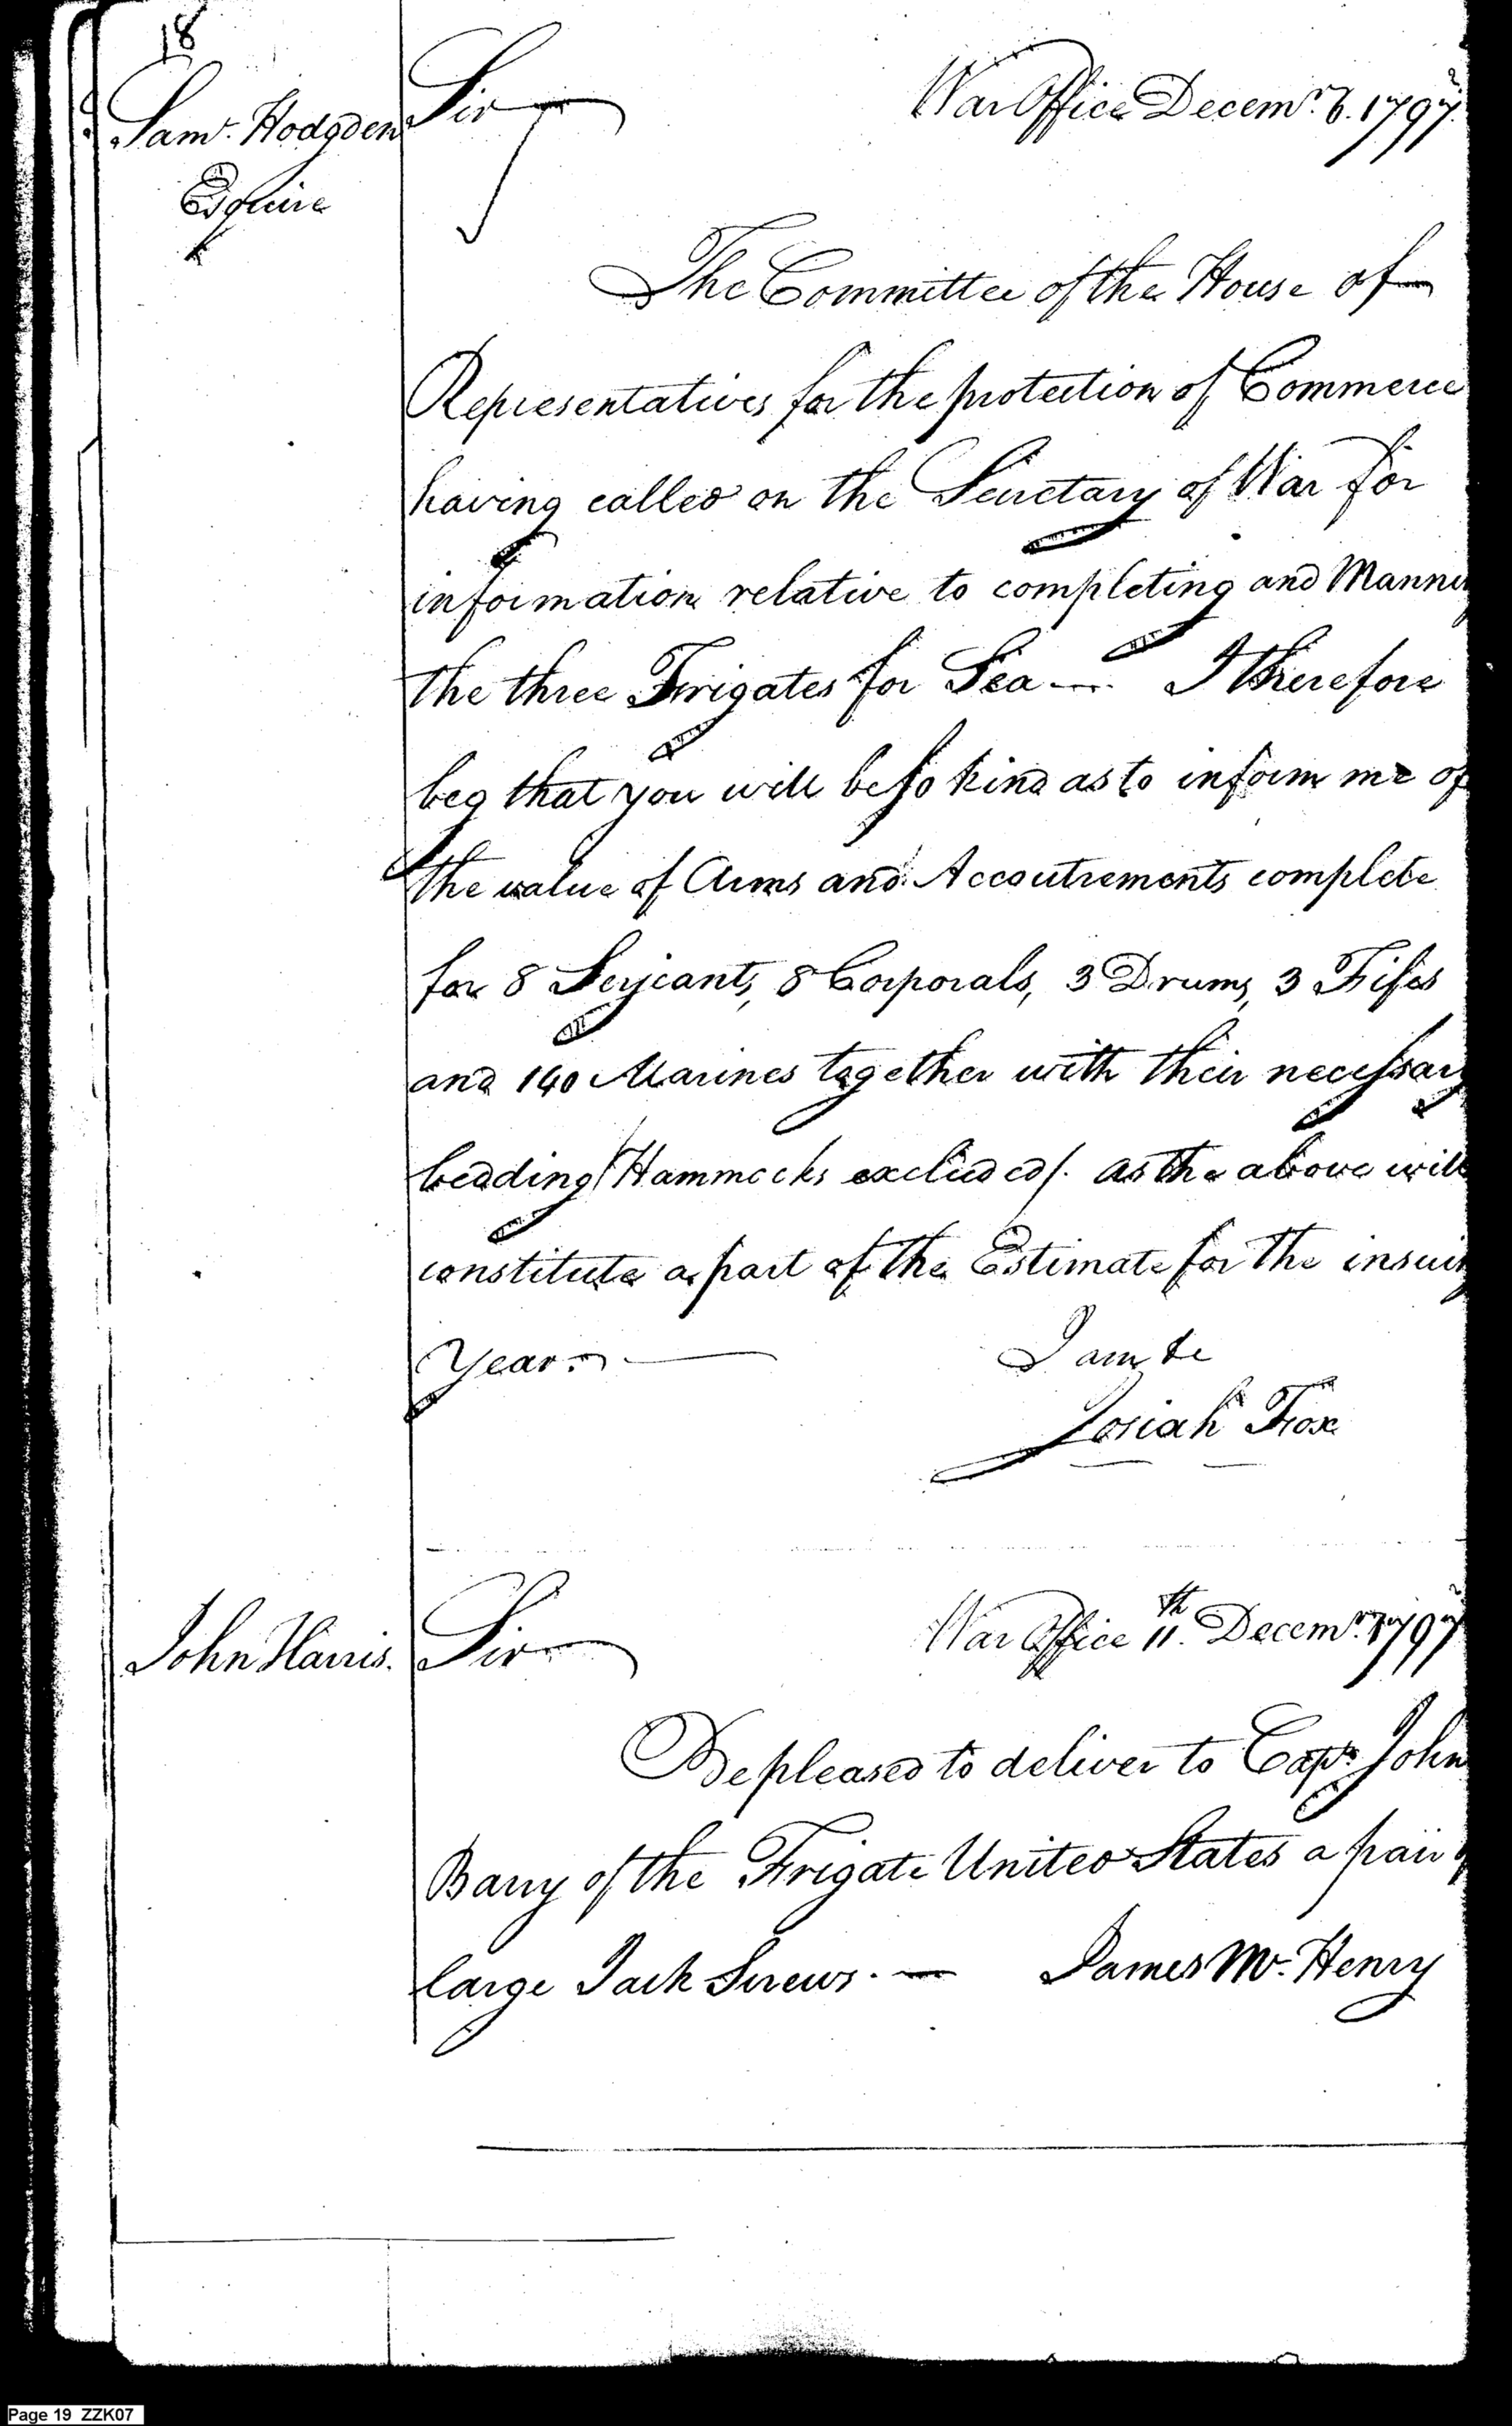 18
Saml. Hodgden
Esquire
Sir
War Office Decemr. 6. 1797.
The Committee of the House of
Representatives for the protection of Commerce
having called on the Secretary of War for
information relative to completing and Mannin
the three Frigates for Sea —. I therefore
beg that you will be so kind as to inform me of
the value of Arms and Accoutrements complete
for 8 Serjeants, 8 Corporals, 3 Drums, 3 Fifes
and 140 Marines together with their necessary
bedding /Hammocks excluded/. as the above will
constitute a part of the Estimate for the insuing
Year. —
I am &c
Josiah Fox
John Harris.
Sir
War Office 11th. Decemr. 1797
Be pleased to deliver to Capt. John
Barry of the Frigate United States a pair of
large Jack Screws. —
James Mc. Henry
Page 19 ZZK07